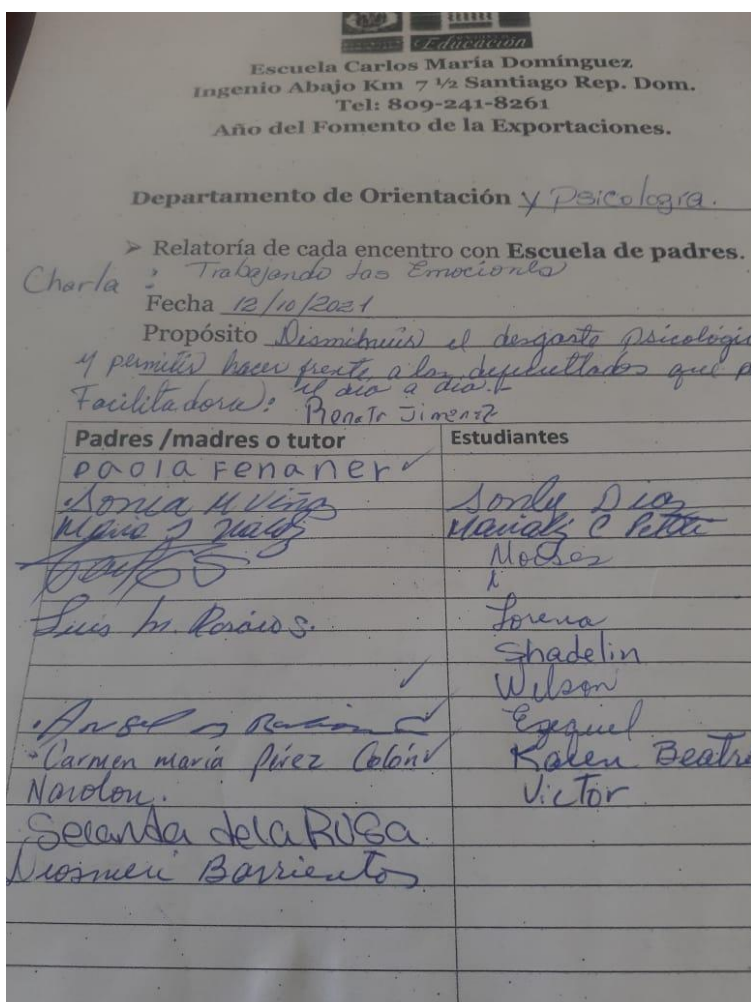 Educación
Escuela Carlos María Domínguez
Ingenio Abajo Km 7 ½ Santiago Rep. Dom.
Tel: 809-241-8261
Año del Fomento de la Exportaciones.
Departamento de Orientación y Psicología.
➢ Relatoría de cada encentro con Escuela de padres.
Charla : Trabajando las Emociones
Fecha 12/10/2021
Propósito Disminuir el desgaste psicológi
y permitir hacer frente a las que p
el dia a dia.
Facilitadora: Renata Jimenez
Padres /madres o tutor Estudiantes
Paola Fenaner
Sonia M Viña Sonly Diaz
Maria C
Moises
Luis M. Rosario S. Lorena
Shadelin
Wilson
Angel Ezequiel
Carmen maría Pérez Colón Karen Beatr
Victor
Secanda dela ROSA
Barrientos